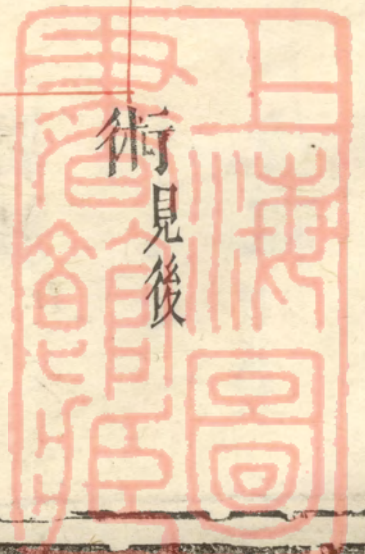 術見後
上海圖
書館藏